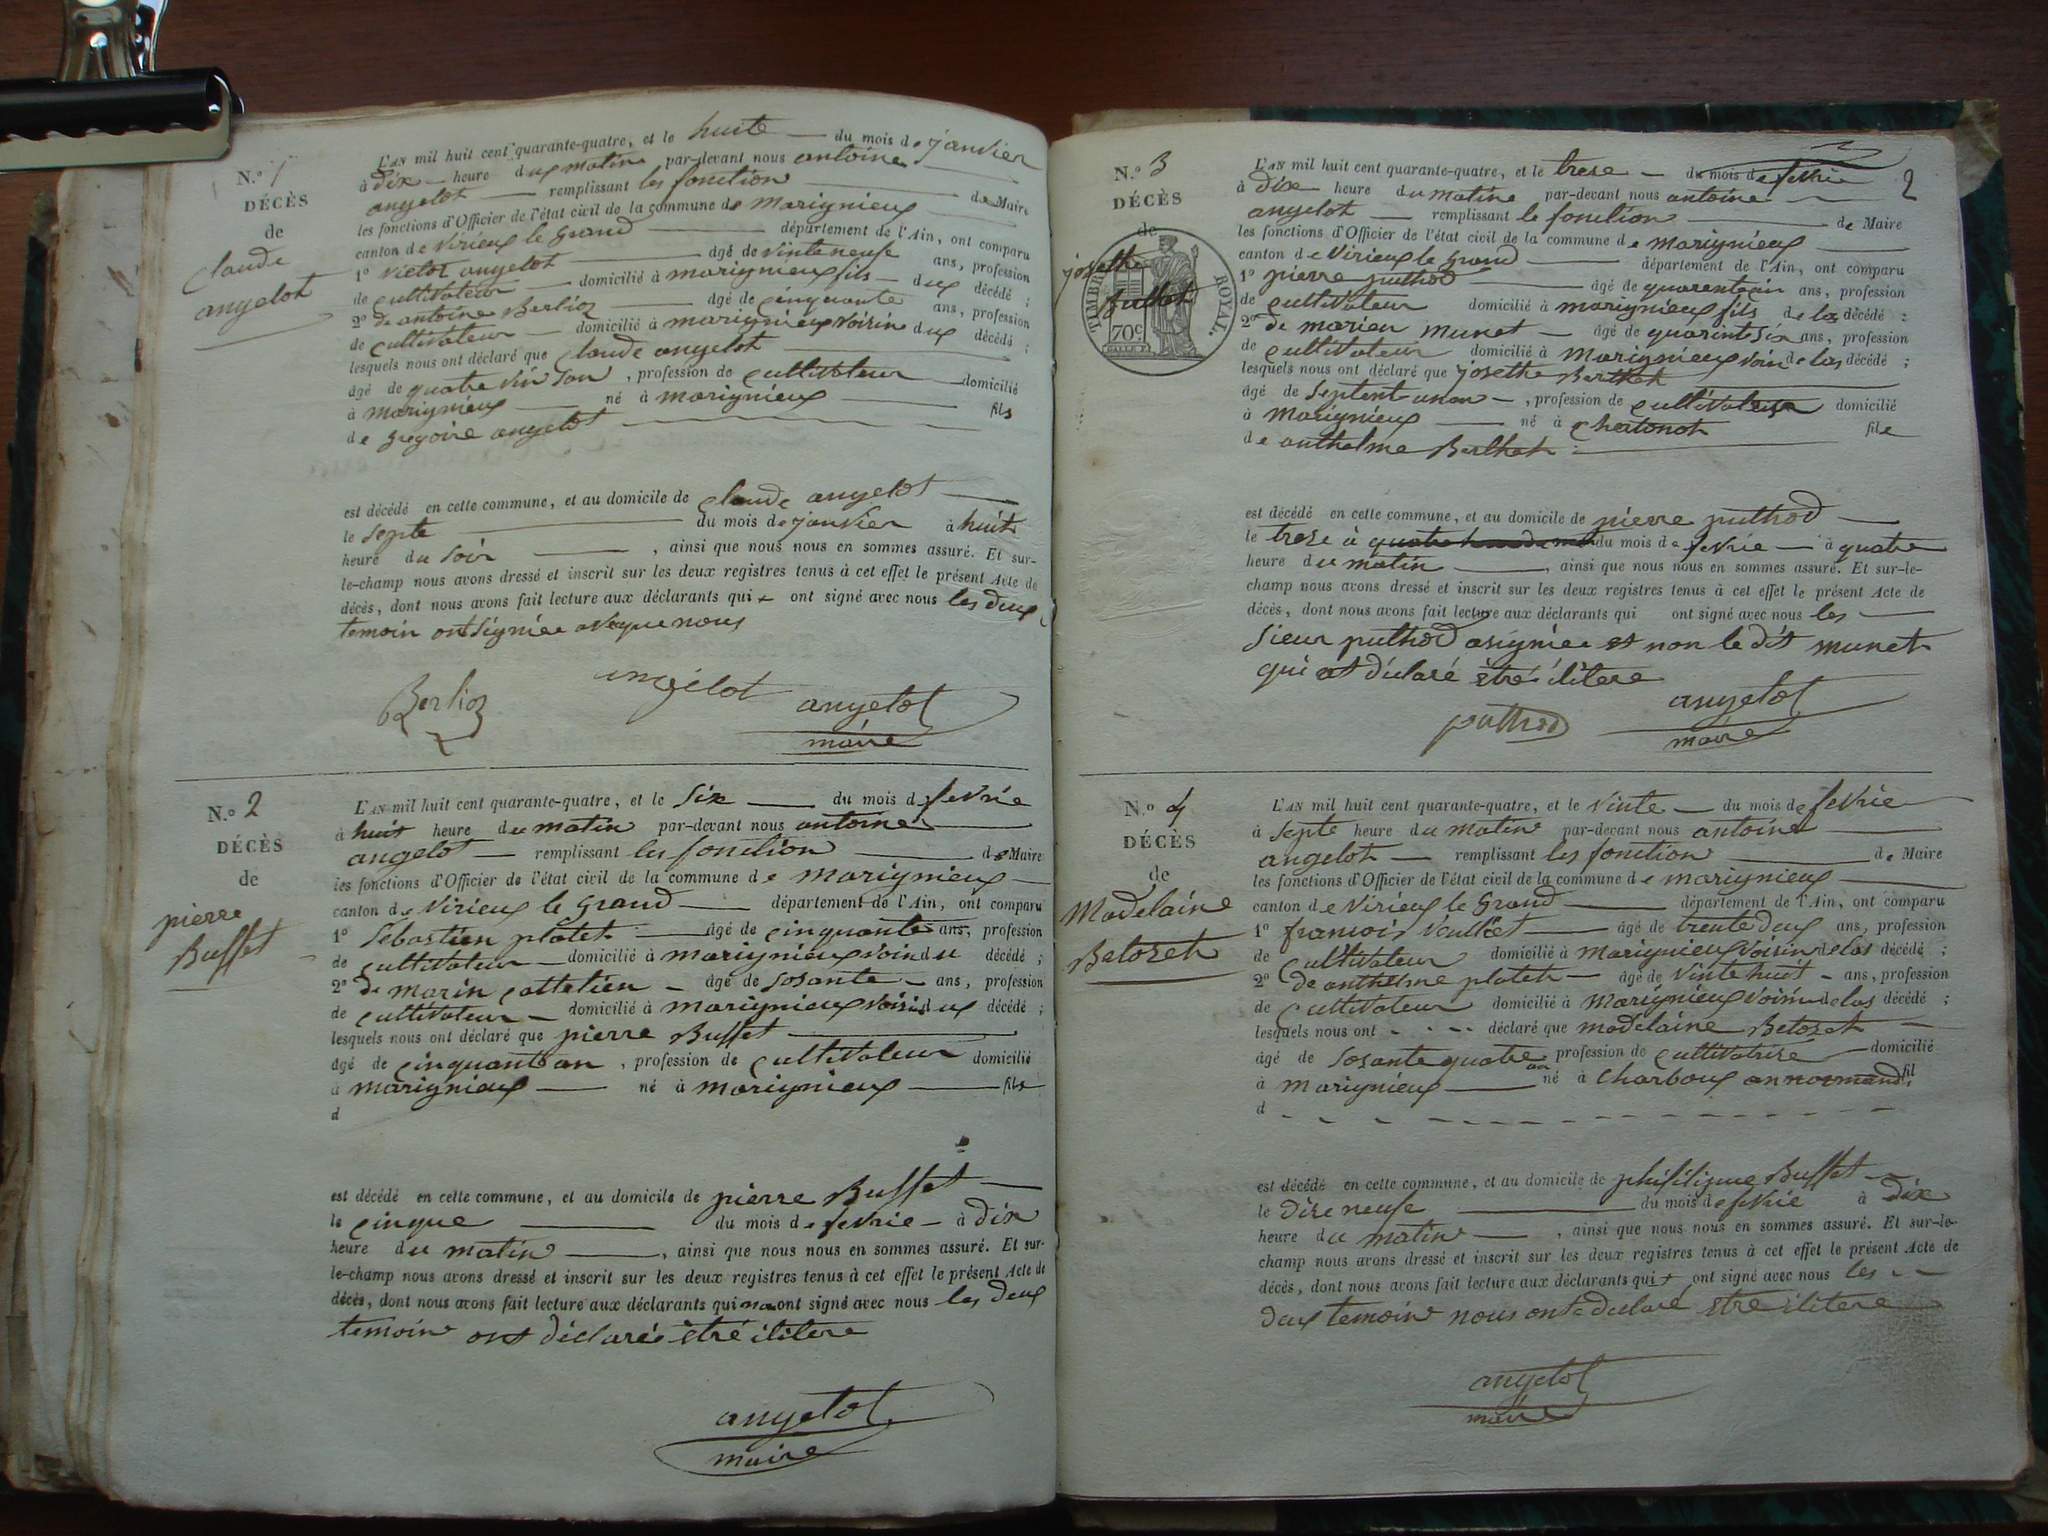 N.º 1
DÉCÈS
de
Claude
angelot
L'AN mil huit cent quarante-quatre, et le huite du mois de janvier
à dix heure du matin par-devant nous antoine
angelot remplissant les fonction de Maire
les fonctions d'Officier de l'état civil de la commune de marignieux
canton de Virieux le grand département de l'Ain, ont comparu
1º victor angelot agé de vinteneufe ans, profession
de cultivateur domicilié à marignieux fils dux décédé ;
2º de antoine Berlioz agé de cinquante ans, profession
de cultivateur domicilié à marignieux voisin dux décédé ;
lesquels nous ont déclaré que claude angelot
âgé de quatre vin , profession de cultivateur domicilié
à marignieux né à marignieux fils
de gregoire angelot
est décédé en cette commune, et au domicile de claude angelot
le septe du mois de janvier à huit
heure du soir , ainsi que nous nous en sommes assuré. Et sur-
le-champ nous avons dressé et inscrit sur les deux registres tenus à cet effet le présent Acte de
décès, dont nous avons fait lecture aux déclarants qui ont signé avec nous les deux
temoin ont signiée aveque nous
Berlioz angelot angelot
maire
N.º 2
DÉCÈS
de
pierre
Buffet
L'AN mil huit cent quarante-quatre, et le six du mois de fevrie
à huit heure du matin par-devant nous antoine
angelot remplissant les fonction de Maire
les fonctions d'Officier de l'état civil de la commune de marignieux
canton de Virieux le grand département de l'Ain, ont comparu
1º Sebastien platet agé de cinquante ans, profession
de cultivateur domicilié à marignieux voin du décédé ;
2º de marin cattelien agé de sosante ans, profession
de cultivateur domicilié à marignieux voisin dux décédé ;
lesquels nous ont déclaré que pierre Buffet
âgé de cinquant an , profession de cultivateur domicilié
à marignieux né à marignieux fils
d
est décédé en cette commune, et au domicile de pierre Buffet
le cinque du mois de fevrie à dix
heure du matin , ainsi que nous nous en sommes assuré. Et sur-
le-champ nous avons dressé et inscrit sur les deux registres tenus à cet effet le présent Acte de
décès, dont nous avons fait lecture aux déclarants qui ont signé avec nous les deux
temoin ont déclarée étré ilitere
angelot
maire
2
N.º 3
DÉCÈS
de
josethe
Bathet
TIMBRE ROYAL.
70c
L'AN mil huit cent quarante-quatre, et le trese du mois de fevrie
à dix heure du matine par-devant nous antoine
angelot remplissant le fonction de Maire
les fonctions d'Officier de l'état civil de la commune de marignieux
canton de Virieux le grand département de l'Ain, ont comparu
1º pierre puthod agé de ans, profession
de cultivateur domicilié à marignieux fils de las décédé ;
2º de marieu munet agé de quarint six ans, profession
de cultivateur domicilié à marignieux voin de las décédé ;
lesquels nous ont déclaré que josethe Berthet
âgé de septent unan , profession de cultivateur domicilié
à marignieux né à chatonot file
de anthelme Berthet
est décédé en cette commune, et au domicile de pierre puthod
le trese à quatre du mois de fevrie à quatre
heure du matin , ainsi que nous nous en sommes assuré. Et sur-le-
champ nous avons dressé et inscrit sur les deux registres tenus à cet effet le présent Acte de
décès, dont nous avons fait lecture aux déclarants qui ont signé avec nous les
sieur puthod asigniée et non le dit munet
qui at déclaré étré ilitere
puthod angelot
maire
N.º 4
DÉCÈS
de
Madelaine
Betozet
L'AN mil huit cent quarante-quatre, et le vinte du mois de fevrie
à septe heure du matin par-devant nous antoine
angelot remplissant les fonction de Maire
les fonctions d'Officier de l'état civil de la commune de marignieux
canton de Virieux le grand département de l'Ain, ont comparu
1º francois Veuillet agé de trente deux ans, profession
de cultivateur domicilié à marignieux voisin de las décédé ;
2º de anthelme platet agé de vinte huit ans, profession
de cultivateur domicilié à marignieux voisin de las décédé ;
lesquels nous ont déclaré que madelaine Betozet
âgé de sosante quatre an profession de cultivatrise domicilié
à marignieux né à charboux fil
d
est décédé en cette commune, et au domicile de Buffet
le dixe neufe du mois de fevrie à dix
heure du matin , ainsi que nous nous en sommes assuré. Et sur-le-
champ nous avons dressé et inscrit sur les deux registres tenus à cet effet le présent Acte de
décès, dont nous avons fait lecture aux déclarants qui ont signé avec nous les
deux temoin nous ont declaré étré ilitere
angelot
maire